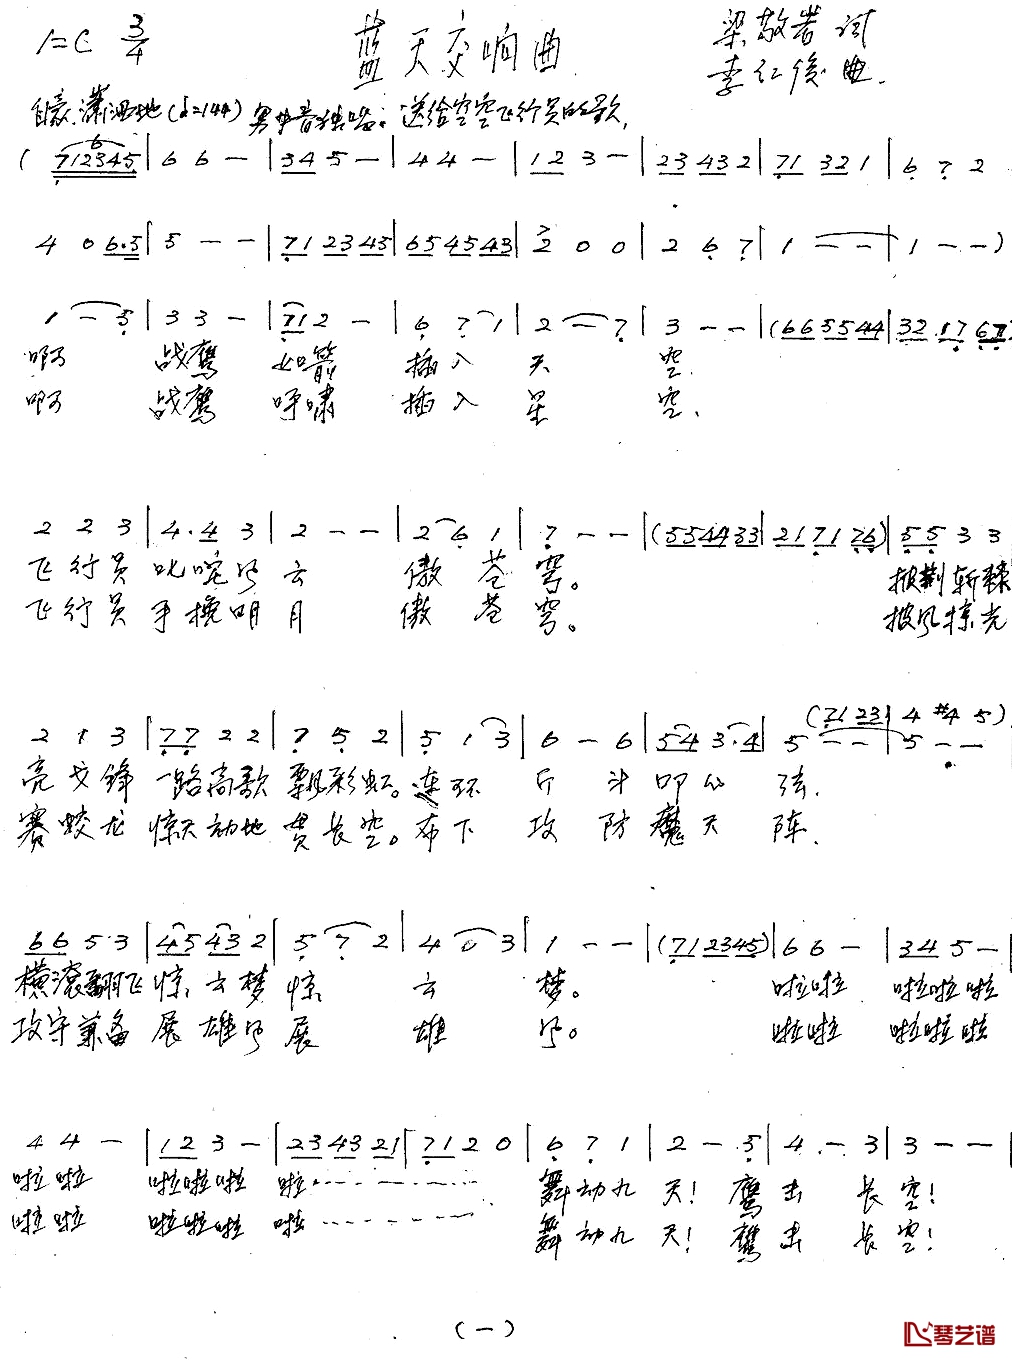 1=C 3/4 蓝天交响曲 梁敬岩 词
李红俊 曲.
自豪、潇洒地(♩=144) 男中音独唱: 送给空空飞行员的歌,
( 712345 | 6 6 - | 34 5 - | 4 4 - | 12 3 - | 23 43 2 | 71 32 1 | 6 7 2
4 0 6.5 | 5 - - | 71 23 43 | 65 45 43 | 2 0 0 | 2 6 7 | 1 - - | 1 - - )
1 - 5 | 3 3 - | 71 2 - | 6 7 1 | 2 - 7 | 3 - - | (66 55 44 | 32 17 67
啊 战鹰 如箭 插入 天 空.
啊 战鹰 呼啸 插入 星 空.
2 2 3 | 4. 4 3 | 2 - - | 2 6 1 | 7 - - | (55 44 33 | 21 71 76) | 5 5 3 3
飞行员 叱咤风云 傲苍穹。 披荆斩棘
飞行员 手挽明月 傲苍穹。 披风掠光
(71 23 | 4 #4 5)
2 1 3 | 77 2 2 | 7 5 2 | 5 1 3 | 6 - 6 | 54 3.4 | 5 - - | 5 - -
亮戈锋 一路高歌 飘彩虹。连环 斤斗叩心弦.
赛蛟龙 惊天动地 贯长空。布下 攻防魔天阵.
66 5 3 | 45 43 2 | 5 7 2 | 4 0 3 | 1 - - | (71 23 45) | 6 6 - | 34 5 - |
横滚翻飞 惊云梦 惊 云 梦。 啦啦 啦啦啦
攻守兼备 展雄风 展 雄 风。 啦啦 啦啦啦
4 4 - | 12 3 - | 23 43 21 | 71 2 0 | 6 7 1 | 2 - 5 | 4 - 3 | 3 - - |
啦啦 啦啦啦 啦 舞动九天! 鹰击长空!
啦啦 啦啦啦 啦 舞动九天! 鹰击长空!
(一)
琴艺谱